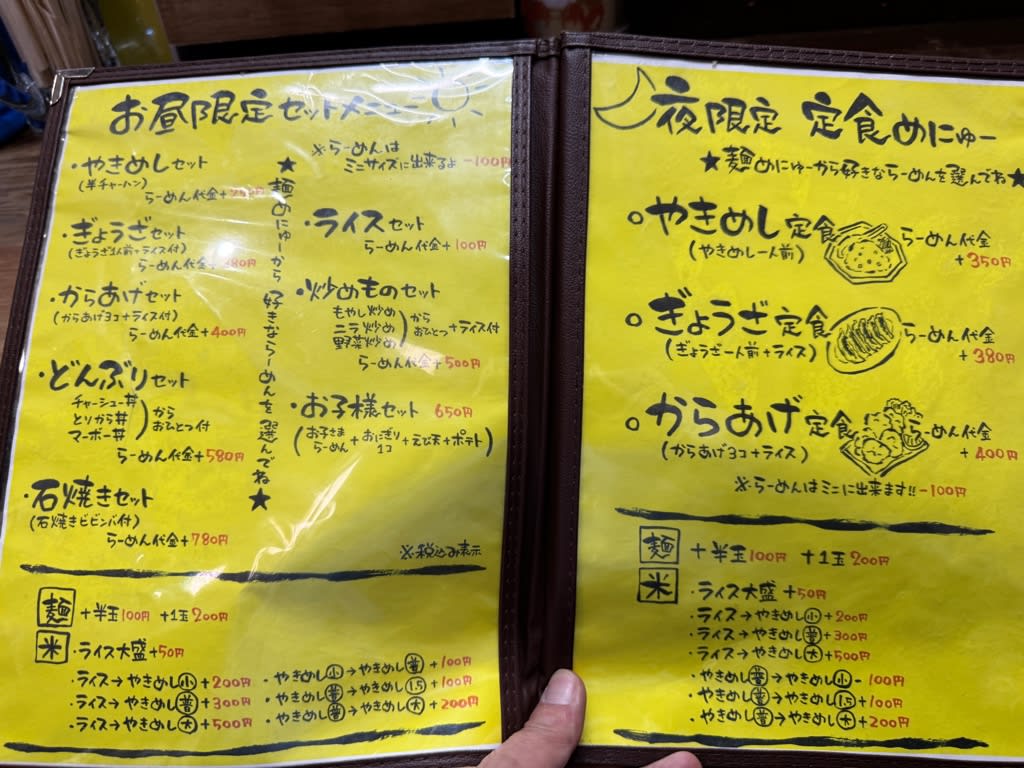 お昼限定セットメニュー
・やきめしセット
(半チャーハン)
らーめん代金+
・ぎょうざセット
(ぎょうざ1人前+ライス付)
らーめん代金+380円
・からあげセット
(からあげ3コ+ライス付)
らーめん代金+400円
・どんぶりセット
チャーシュー丼
とりから丼
マーボー丼
からおひとつ付
らーめん代金+580円
・石焼きセット
(石焼きビビンバ付)
らーめん代金+780円
★麺めにゅーから好きならーめんを選んでね★
※らーめんは
ミニサイズに出来るよ -100円
・ライスセット
らーめん代金+100円
・炒めものセット
もやし炒め
ニラ炒め
野菜炒め
からおひとつ+ライス付
らーめん代金+500円
・お子様セット 650円
(お子さまらーめん+おにぎり1コ+えび天+ポテト)
※税込み表示
麺 +半玉100円 +1玉200円
米 ・ライス大盛+50円
・ライス→やきめし小+200円
・ライス→やきめし普+300円
・ライス→やきめし大+500円
・やきめし小→やきめし普+100円
・やきめし普→やきめし1.5+100円
・やきめし普→やきめし大+200円
夜限定 定食めにゅー
★麺めにゅーから好きならーめんを選んでね★
○やきめし定食
(やきめし一人前)
らーめん代金
+350円
○ぎょうざ定食
(ぎょうざ一人前+ライス)
らーめん代金
+380円
○からあげ定食
(からあげ3コ+ライス)
らーめん代金
+400円
※らーめんはミニに出来ます!!-100円
麺 +半玉100円 +1玉200円
米 ・ライス大盛+50円
・ライス→やきめし小+200円
・ライス→やきめし普+300円
・ライス→やきめし大+500円
・やきめし普→やきめし小-100円
・やきめし普→やきめし1.5+100円
・やきめし普→やきめし大+200円